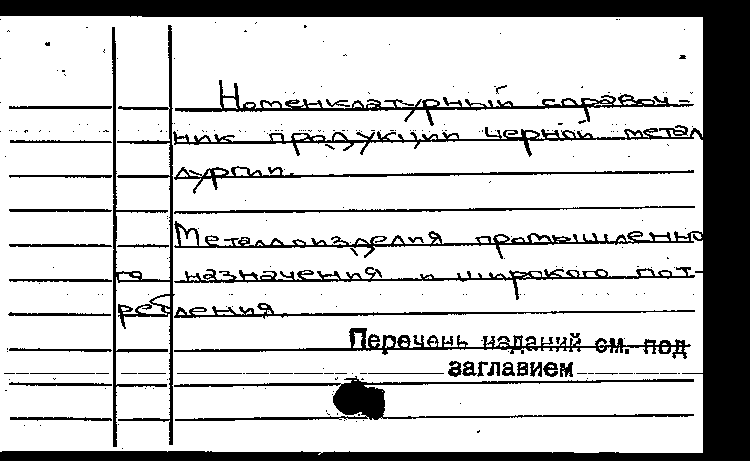 Номенклатурный справоч-
ник продукции черной метал
лургии.
Металлоизделия промышленно
го назначения и широкого пот-
ребления.
Перечень изданий см. под
заглавием